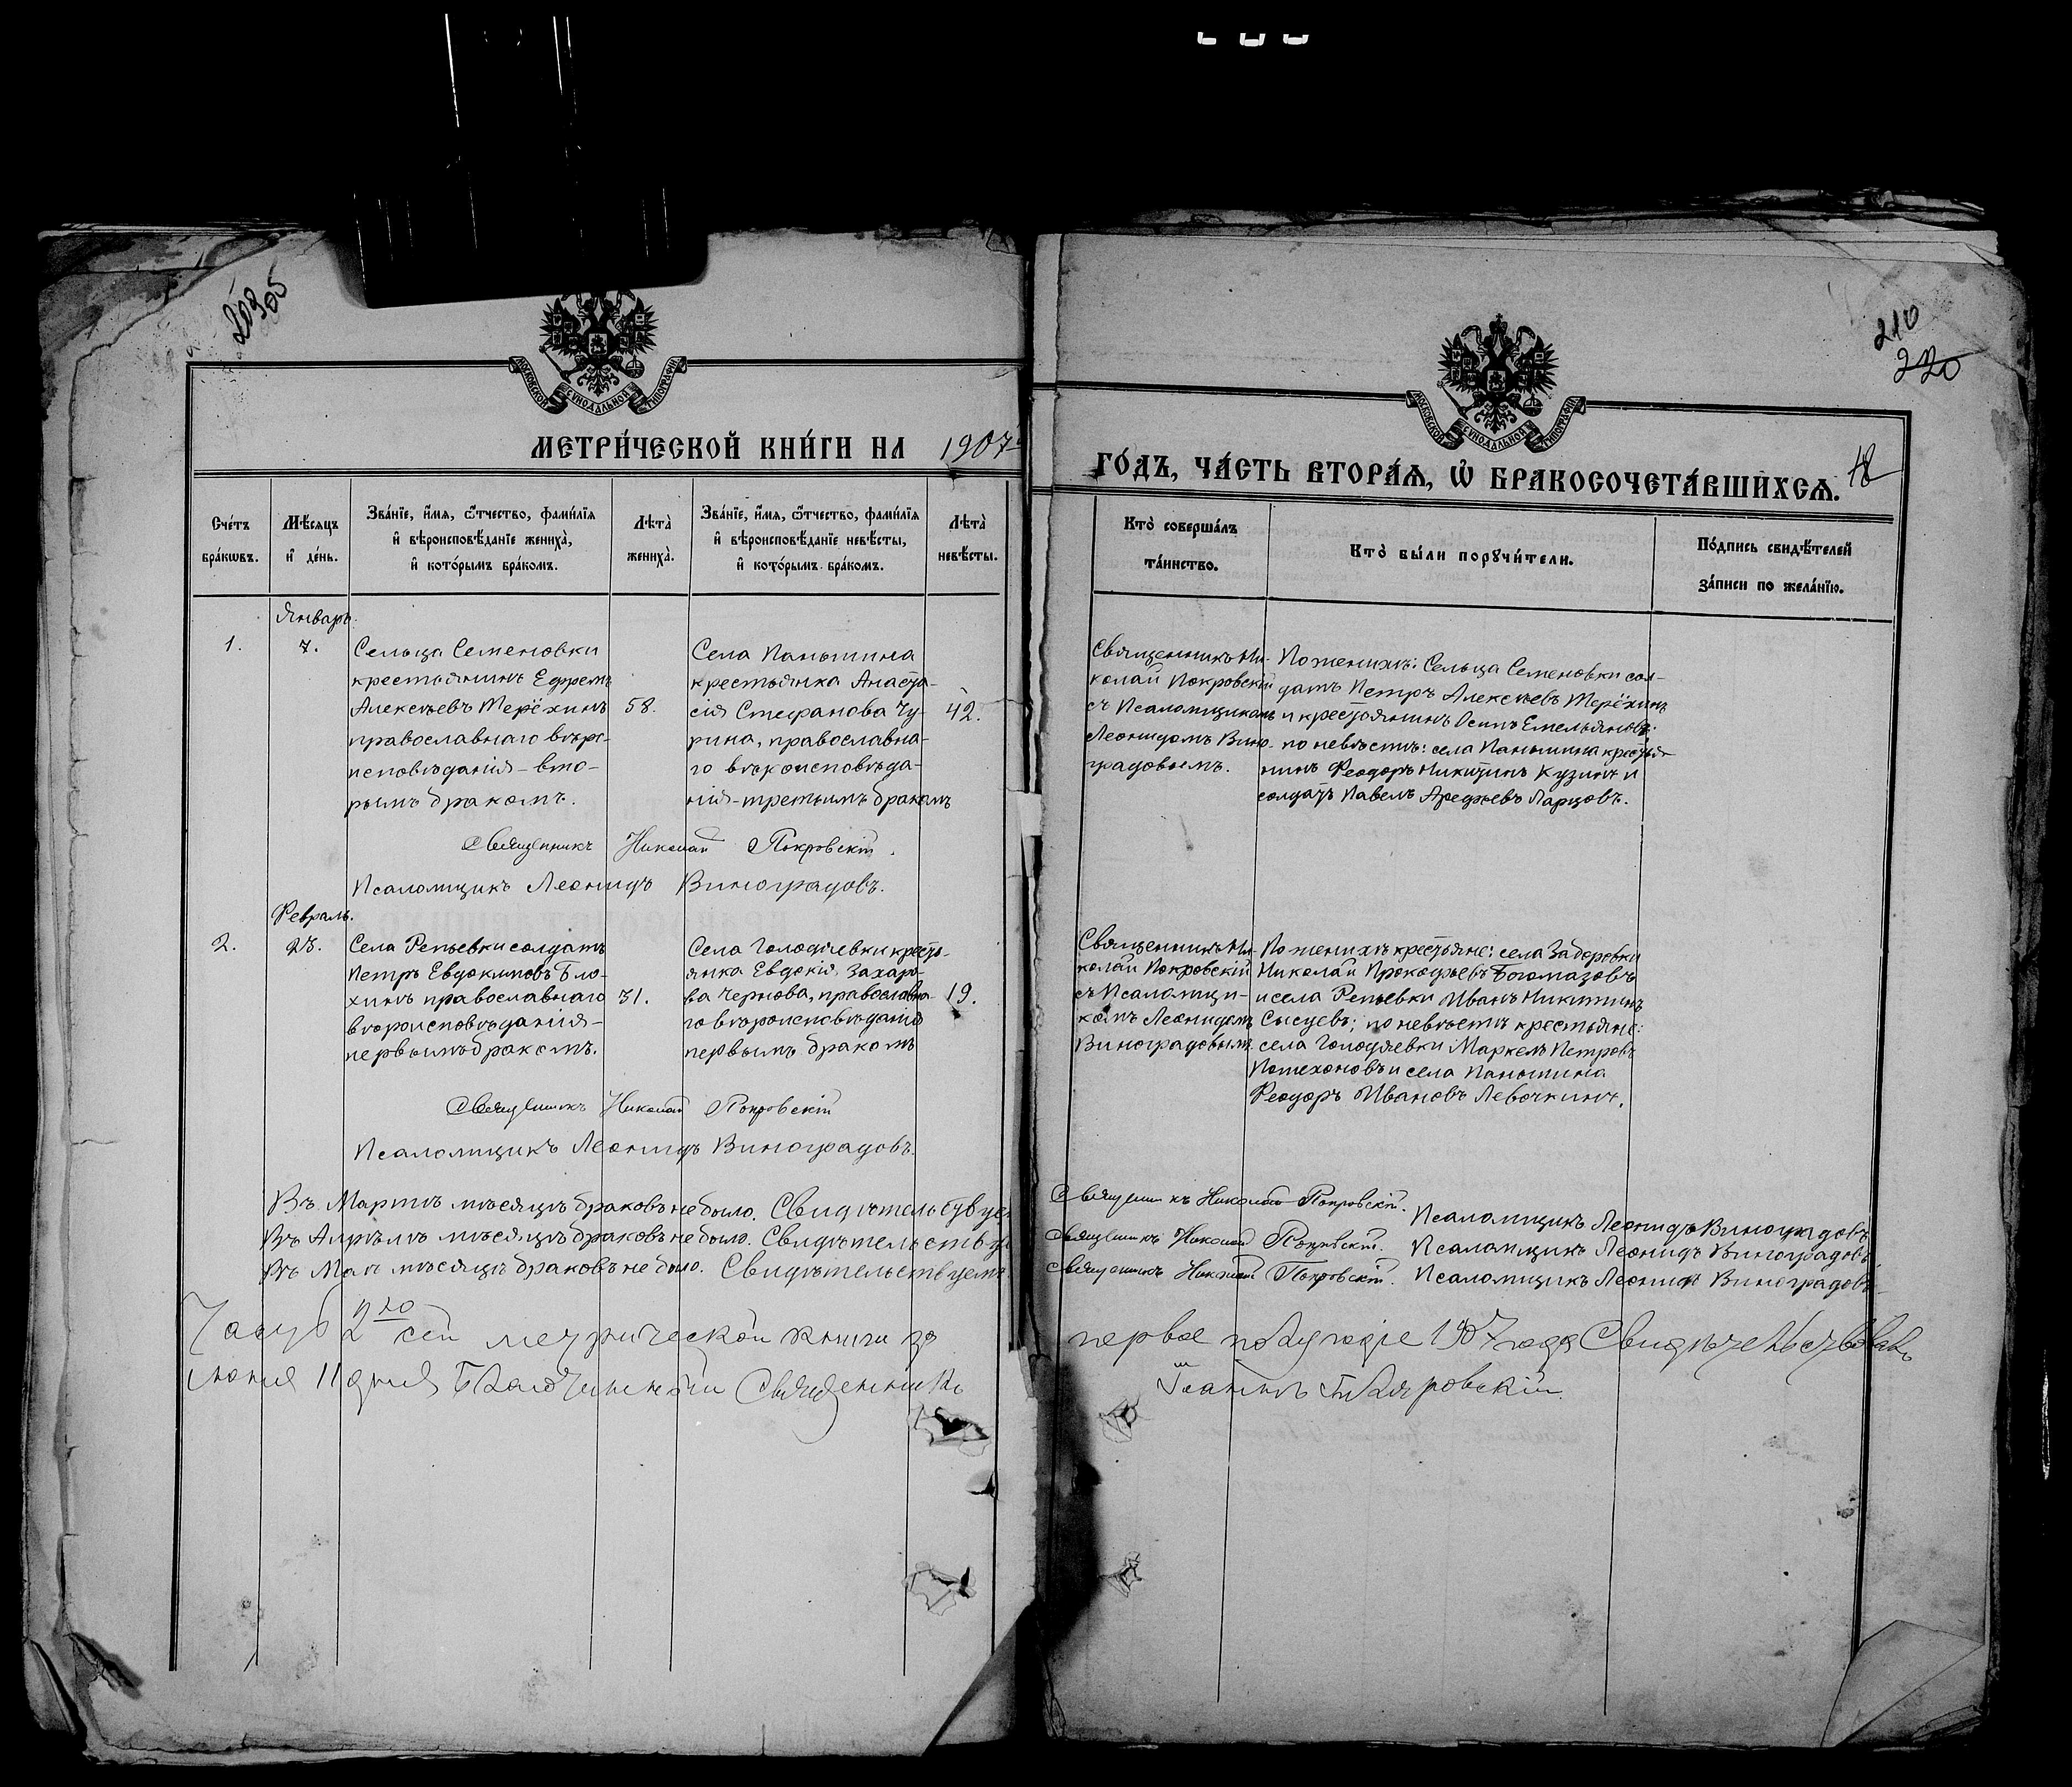 210
220
МОСКОВСКОЙ СУНОДАЛЬНОЙ ТИПОГРАФІИ
МОСКОВСКОЙ СУНОДАЛЬНОЙ ТИПОГРАФІИ
МЕТРИ́ЧЕСКОЙ КНИ́ГИ НА 1907
ГО́ДЪ, ЧА́СТЬ ВТОРА́Ѧ, Ѽ БРАКОСОЧЕТА́ВШИХСѦ. 18
Сче́тъ бра́кѡвъ.
Мѣ́сѧцъ и҆ де́нь.
Зва́нїе, и҆́мѧ, ѻ҆́тчество, фами́лїѧ
и҆ вѣроисповѣ́данїе жениха̀,
и҆ кото́рымъ бра́комъ.
Лѣта̀ жениха̀.
Зва́нїе, и҆́мѧ, ѻ҆́тчество, фами́лїѧ
и҆ вѣроисповѣ́данїе невѣ́сты,
и҆ кото́рымъ бра́комъ.
Лѣта̀ невѣ́сты.
Кто̀ соверша́лъ
та́инство.
Кто̀ бы́ли порꙋчи́тели.
По́дпись свидѣ́телей
за́писи по жела́нїю.
Январь.
1.
7.
Сельца Семеновки
крестьянинъ Ефремъ
Алексѣевъ Терёхинъ
православнаго вѣро-
исповѣданія – вто-
рымъ бракомъ.
58.
Села Паньшина
крестьянка Анаста-
сія Стефанова Чу-
рина, православна-
го вѣроисповѣда-
нія – третьимъ бракомъ
42.
Священникъ Ни-
колай Покровскій
съ Псаломщикомъ
Леонидомъ Вино-
градовымъ.
По женихѣ: Сельца Семеновки сол-
датъ Петръ Алексѣевъ Терёхинъ
и крестьянинъ Осипъ Емельяновъ;
по невѣстѣ: села Паньшина крестья-
нинъ Феодоръ Никитинъ Кузинъ и
солдатъ Павелъ Арефьевъ Ларцовъ.
Священникъ Николай Покровскій.
Псаломщикъ Леонидъ Виноградовъ.
Февраль.
2.
Села Репьевки солдатъ
Петръ Евдокимовъ Бло-
хинъ православнаго
вѣроисповѣданія –
первымъ бракомъ.
31.
Села Голодяевки кресть-
янка Евдокія Захаро-
ва Чернова, православна-
го вѣроисповѣданія
первымъ бракомъ
19.
Священникъ Ни-
колай Покровскій
съ Псаломщи-
комъ Леонидомъ
Виноградовымъ.
По женихѣ крестьяне: села Заборовки
Николай Прокофьевъ Богомазовъ
и села Репьевки Иванъ Никитинъ
Сысуевъ; по невѣстѣ крестьяне:
села Голодяевки Маркелъ Петровъ
Потехоновъ и села Паньшина
Феодоръ Ивановъ Левочкинъ.
Священникъ Николай Покровскій
Псаломщикъ Леонидъ Виноградовъ.
Въ Мартѣ мѣсяцѣ браковъ не было. Свидѣтельствуемъ Священникъ Николай Покровскій. Псаломщикъ Леонидъ Виноградовъ
Въ Апрѣлѣ мѣсяцѣ браковъ не было. Свидѣтельству Священникъ Николай Покровскій. Псаломщикъ Леонидъ Виноградовъ
Въ Маѣ мѣсяцѣ браковъ не было. Свидѣтельствуемъ Священникъ Николай Покровскій. Псаломщикъ Леонидъ Виноградовъ
Часть 2ю сей метрической книги за первое полугодіе 1907 года Свидѣтельствовалъ
Іюня 11 дня Благочинный Священникъ Іоаннъ